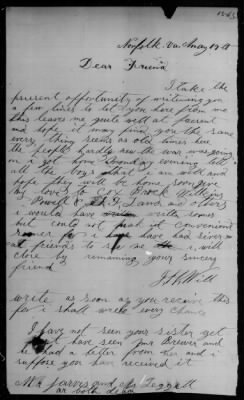 Norfolk. Va
Dear Friend
I take the
present opportunity of writeing you
a few lines to let you here from me
this leaves me quite well at present
and hope it may find you the same
every thing seems as old times here
the People hardly no the war was going
on i got home evening tell
all the boys that i am well and
hope they will be home soon give
my love to
Powell & Land and others
i would have writen sooner
but could not make it convenient
sooner for i have had
friends to see so i will
close by remaining your sincery
friend
write as soon as you receive this
for i shall write every chance
I have not seen your sister yet
but have seen Brewer and
he had a letter from her and i
suppose you have received it
Mr Jarvis and
are both dead